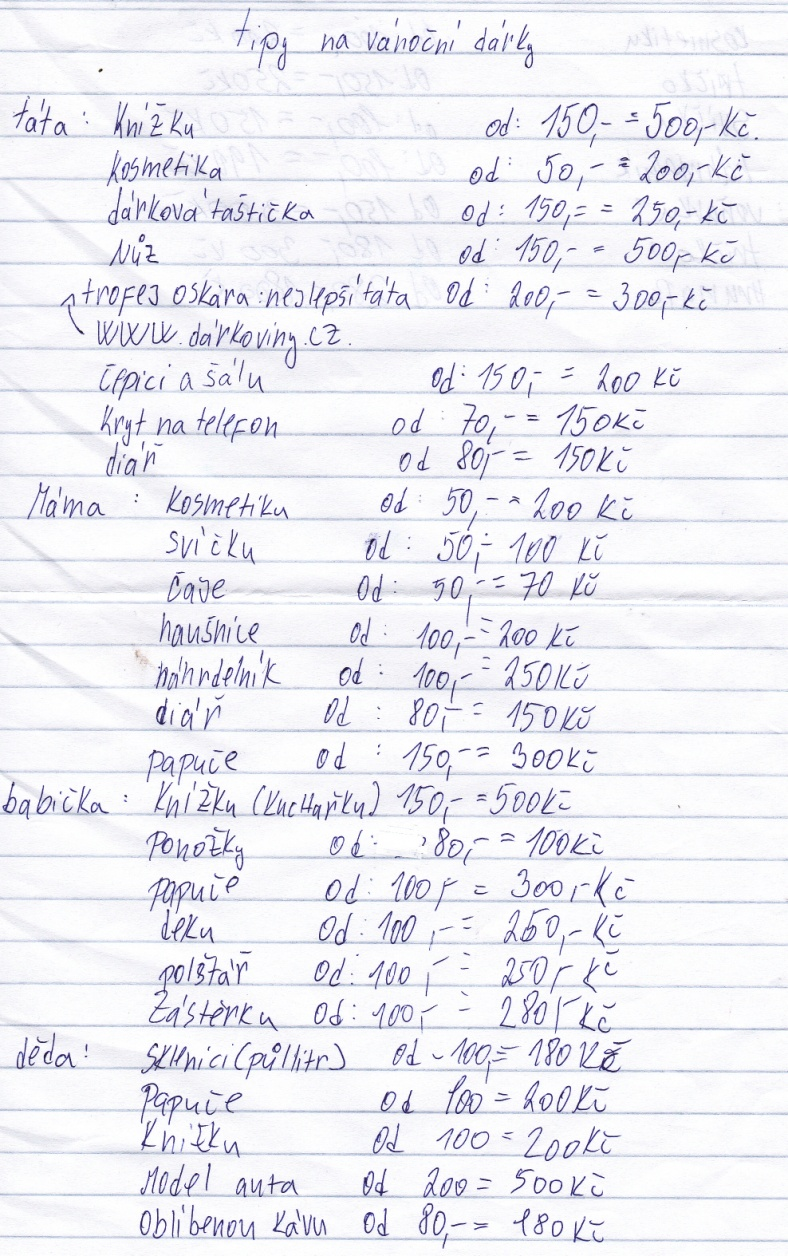 tipy na vánoční dárky
táta: Knížku od: 150,- = 500,-Kč.
kosmetika od: 50,- = 200,-Kč
dárková taštička od: 150,- = 250,-Kč
Nůž od: 150,- = 500,-Kč
trofej oskara: nejlepší táta od: 200,- = 300,-Kč
WWW.dárkoviny.CZ.
čepici a šálu od: 150,- = 200 Kč
Kryt na telefon od 70,- = 150Kč
diář od 80,- = 150Kč
Máma: kosmetiku od: 50,- = 200 Kč
svíčku od: 50,- = 100 Kč
čaje od: 50,- = 70 Kč
naušnice od: 100,- = 200 Kč
náhrdelník od: 100,- = 250Kč
diář od: 80,- = 150Kč
papuče od: 150,- = 300Kč
babička: Knížku (KucHařku) 150,- = 500Kč
Ponožky od: 80,- = 100Kč
papuče od: 100,- = 300,-Kč
deku od: 100,- = 250,-Kč
polštář od: 100,- = 250,-Kč
Zástěrku od: 100,- = 280,-Kč
děda: sklenici (půllitr) od - 100,= 180Kč
Papuče od 100 = 200Kč
Knížku od 100 = 200Kč
Model auta od 200 = 500Kč
Oblíbenou Kávu od 80,- = 180Kč